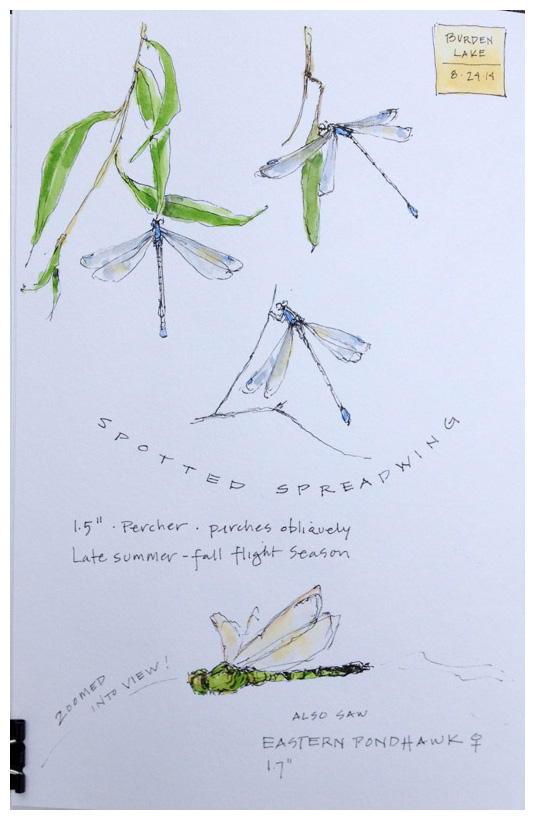 BURDEN
LAKE
8·24·14
SPOTTED SPREADWING
1.5" · Percher · perches obliquely
Late summer - fall flight season
ZOOMED
INTO VIEW!
ALSO SAW
EASTERN PONDHAWK ♀
1.7"